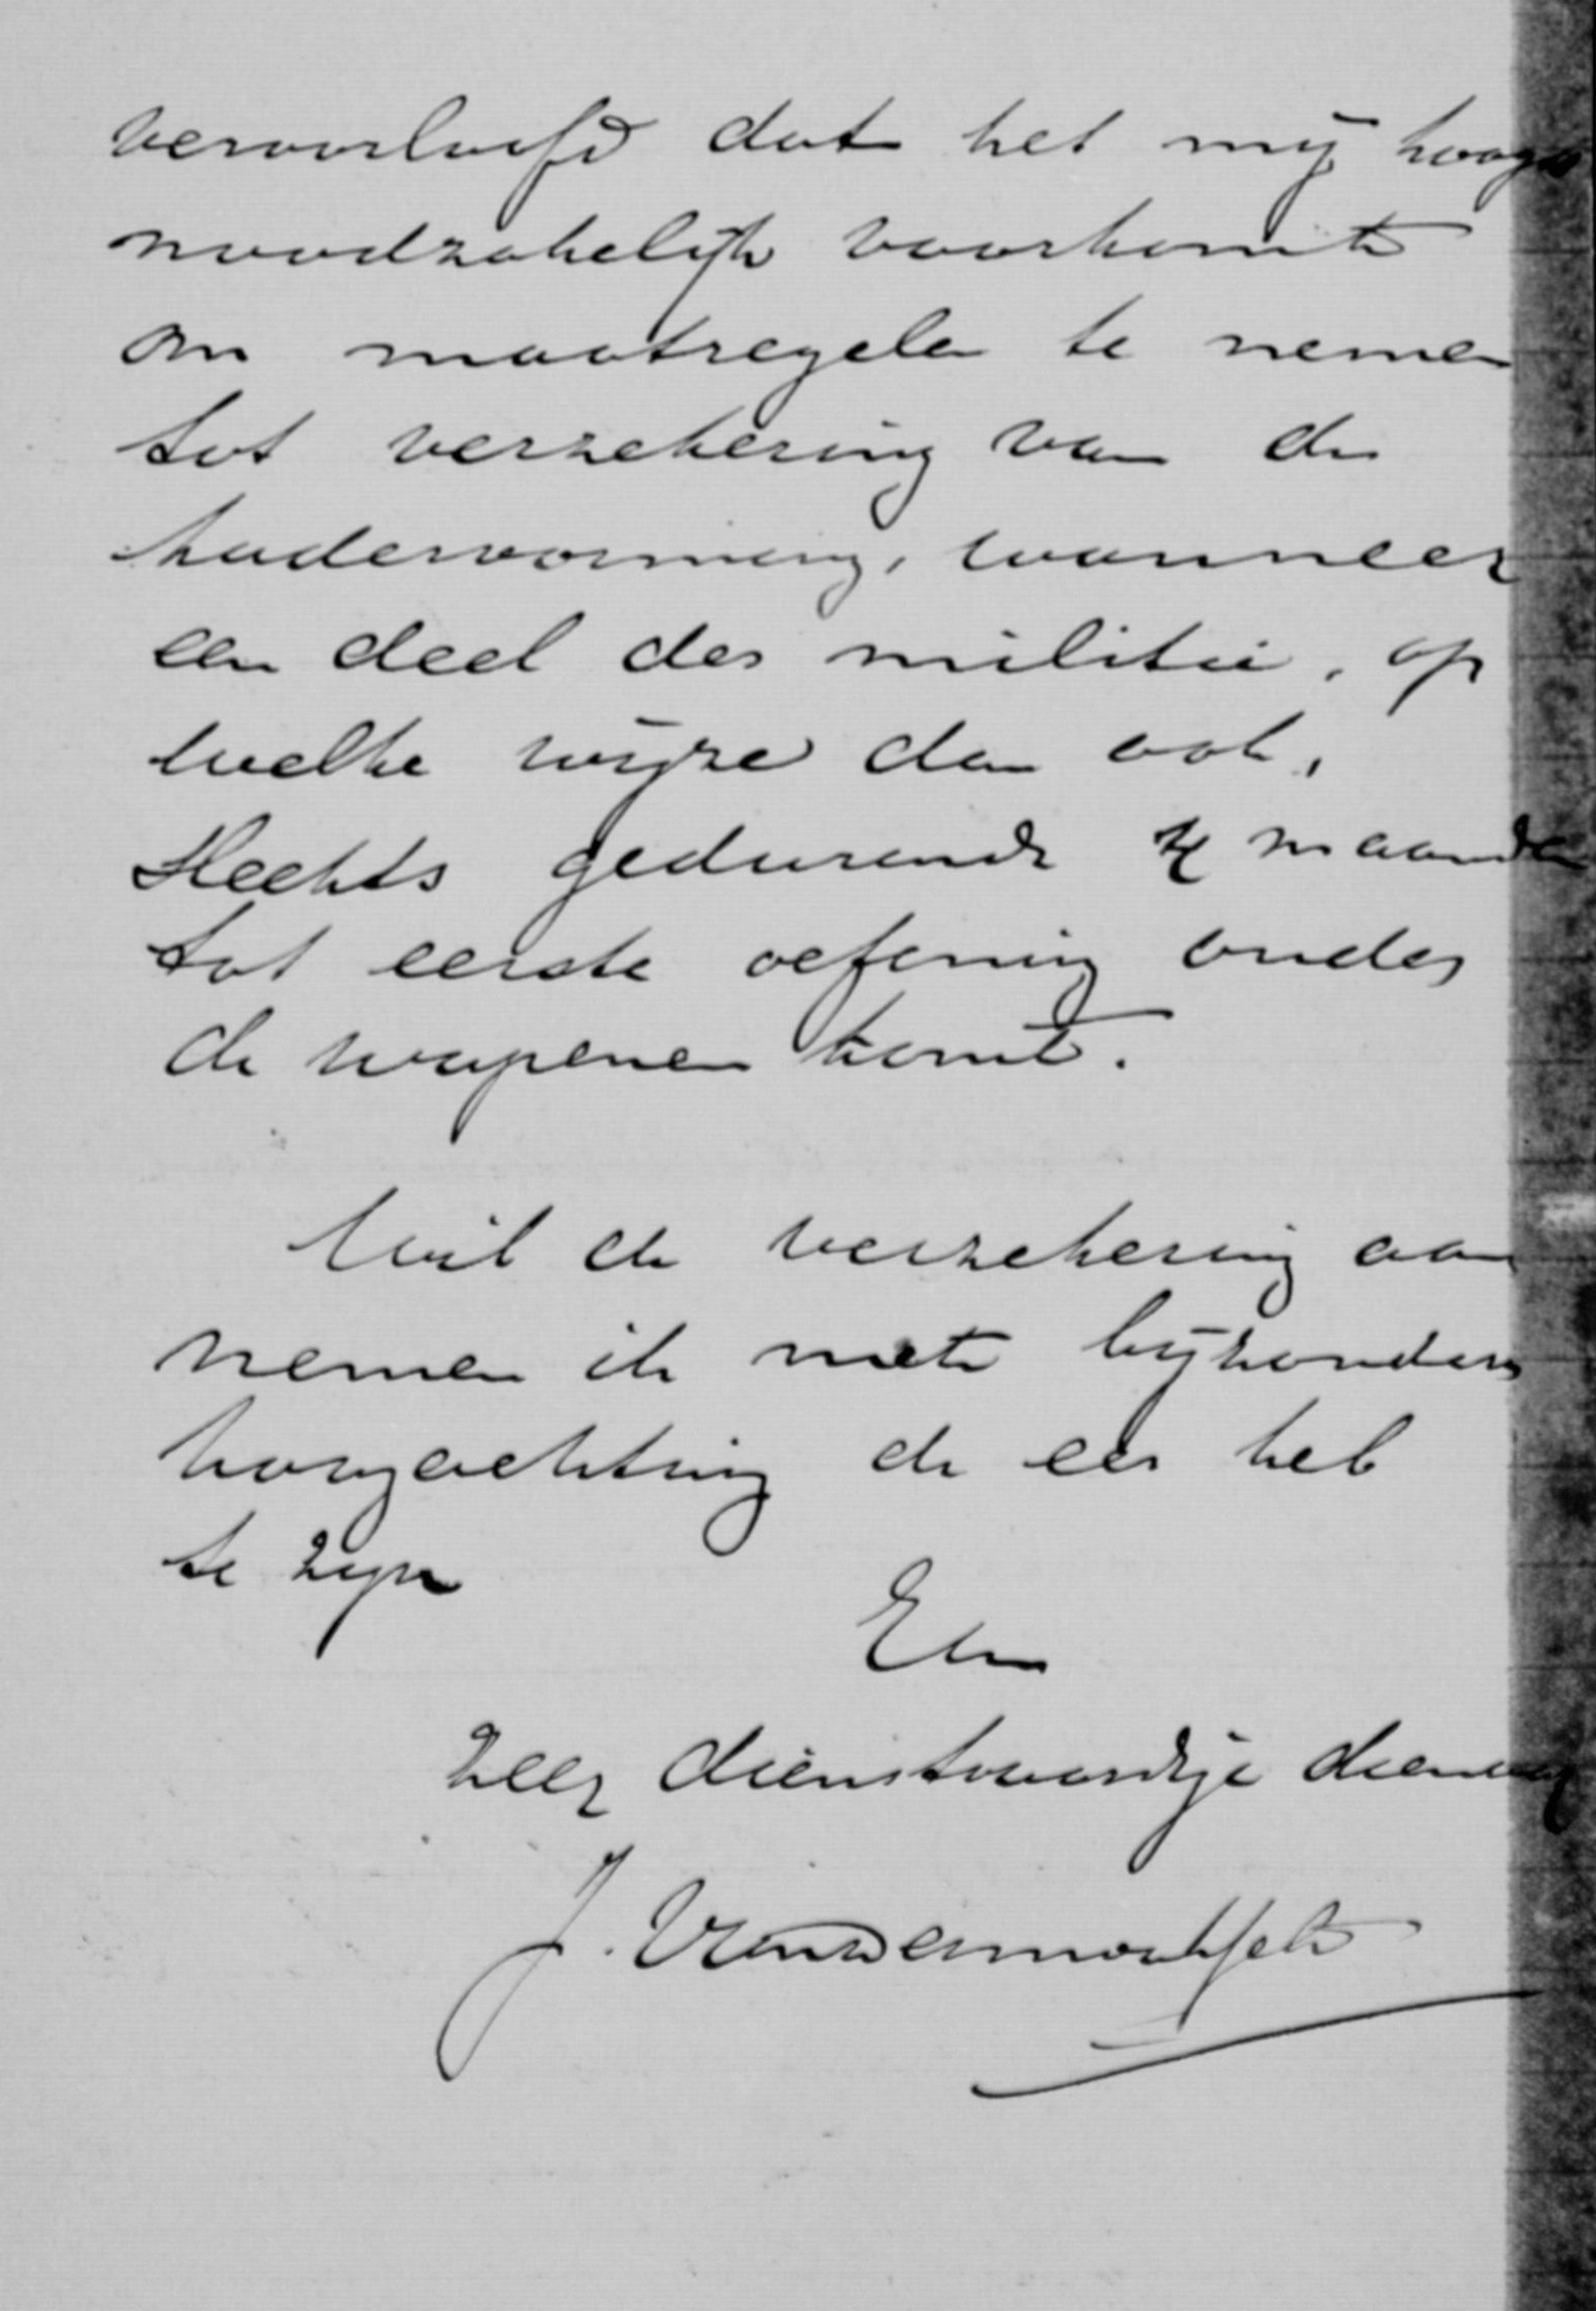 veroorloofd dat het mij hoogst
noodzakelijk voorkomt
om maatregelen te nemen
tot verzekering van de
kadervorming, wanneer
een deel der militie, op
welke wijze dan ook,
slechts gedurende 4 maanden
tot eerste oefening onder
de wapenen komt.
Wil de verzekering aan
nemen ik met bijzondere
hoogachting de eer heb
te zijn
Uw
zeer dienstvaardige dienaar
J.